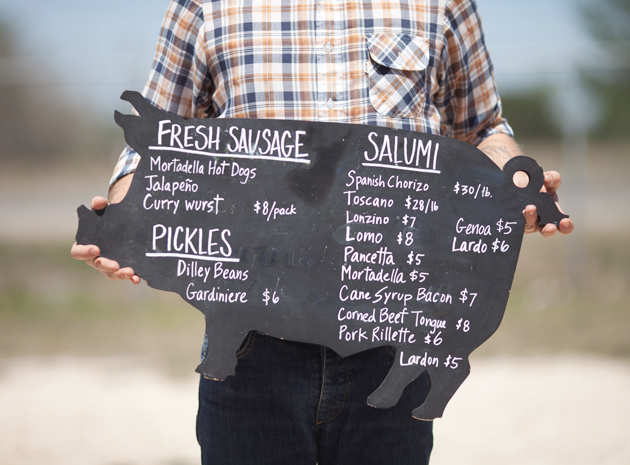 FRESH SAUSAGE
Mortadella Hot Dogs
Jalapeño
Curry wurst $8/pack
PICKLES
Dilley Beans
Gardiniere $6
SALUMI
Spanish Chorizo $30/lb.
Toscano $28/lb
Lonzino $7
Lomo $8
Genoa $5
Lardo $6
Pancetta $5
Mortadella $5
Cane Syrup Bacon $7
Corned Beef Tongue $8
Pork Rillette $6
Lardon $5